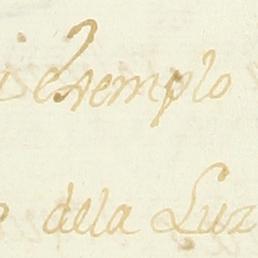 exemplo
dela Luz